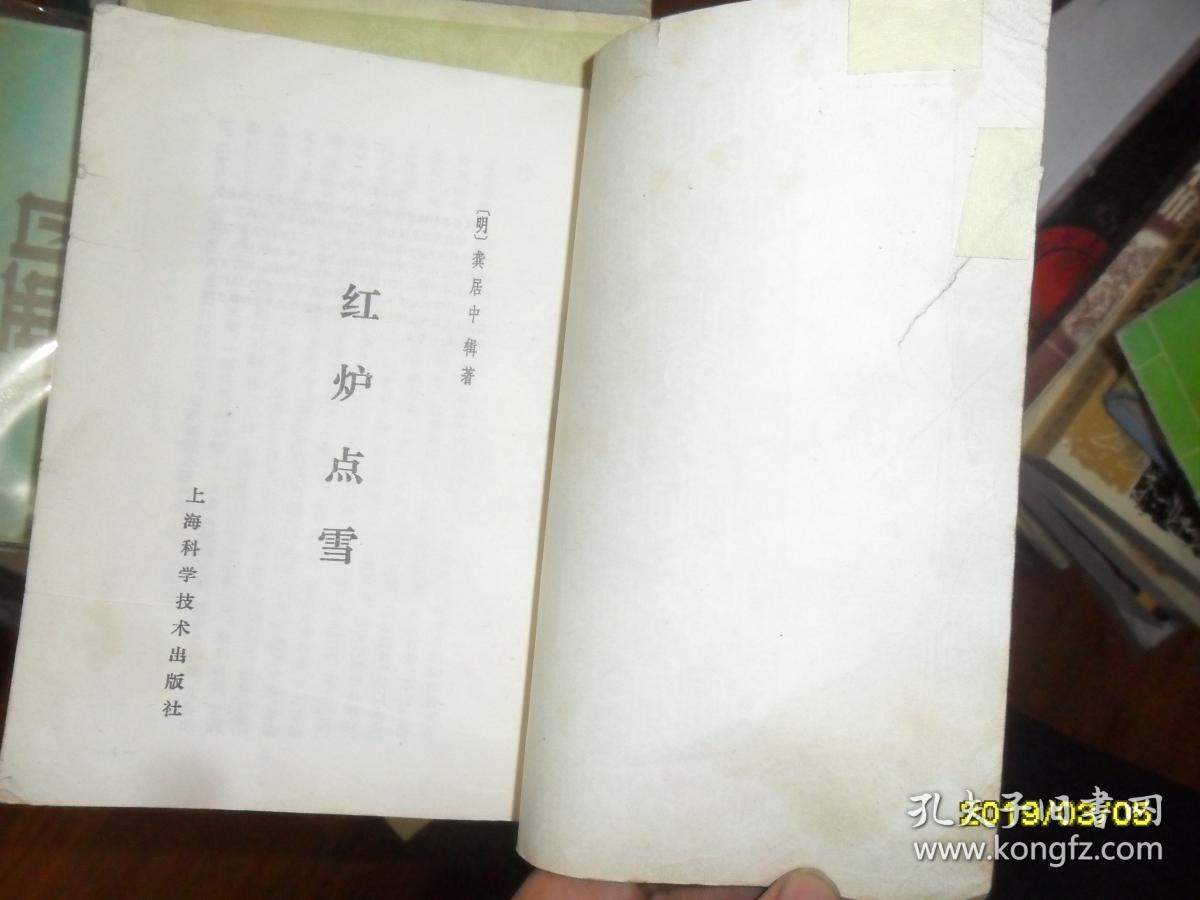 〔明〕龚居中 辑著
红炉点雪
上海科学技术出版社
2019/03/05
孔夫子旧書网
www.kongfz.com